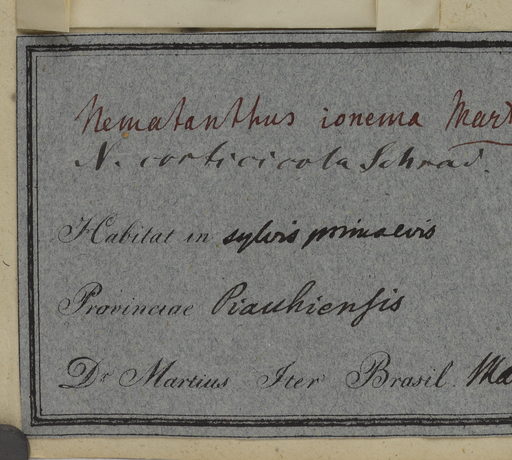 Nematanthus ionema Mart
N. corticicola Schrad.
Habitat in sylvis primaevis
Provinciae Piauhiensis
Dr Martius Iter Brasil. Ma